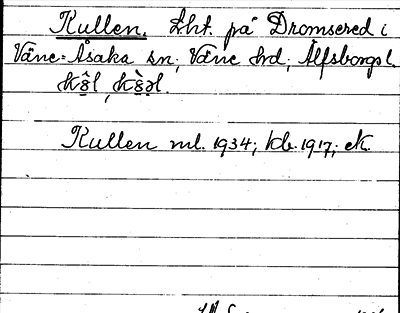 Kullen. Lht. på Dromsered i
Väne-Åsaka sn; Väne hd; Älfsborgs l.
Kullen ml. 1934; kb. 1917; ek.